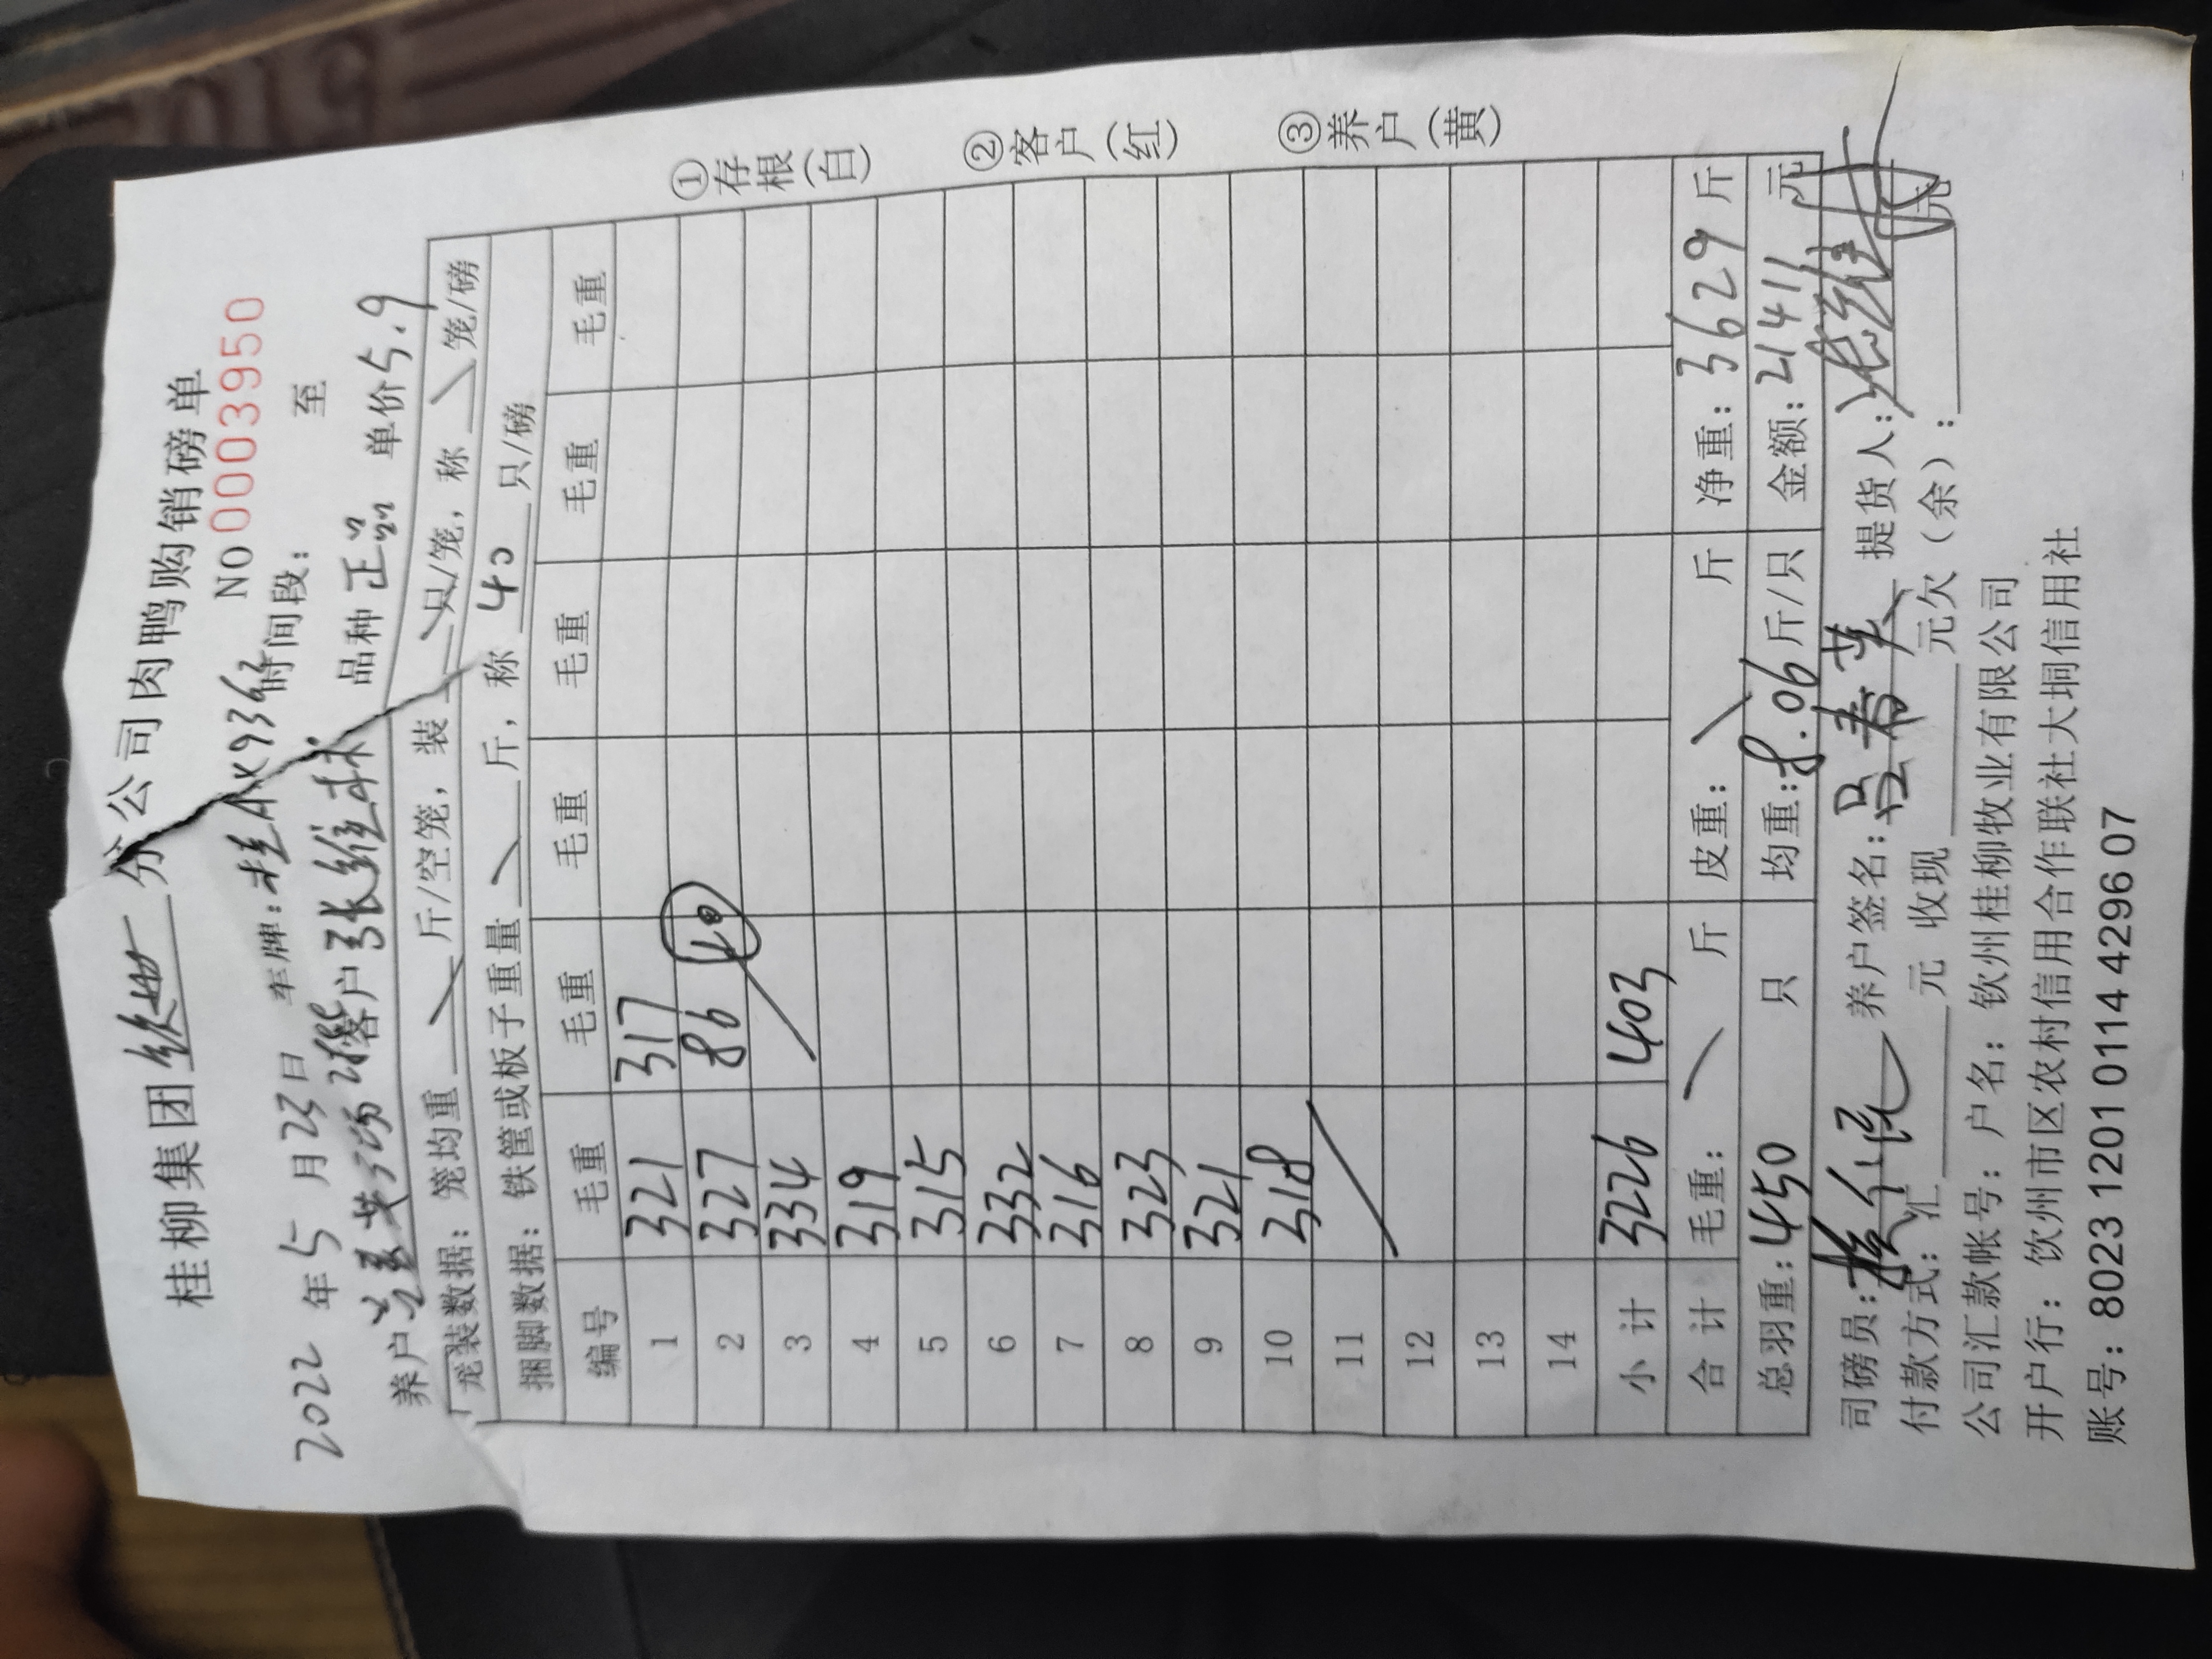 桂柳集团 分公司肉鸭购销磅单
NO 0003950
2022年5月23日 车牌:桂AX936 时间段: 至
养户 客户 张维林 品种 正品 单价 5.9
笼装数据: 笼均重 斤/空笼, 装 只/笼, 称 笼/磅
捆脚数据: 铁筐或板子重量 斤, 称 40 只/磅
编号 毛重 毛重 毛重 毛重 毛重 毛重
1 321 317
2 327 86 40
3 334
4 319
5 315
6 332
7 316
8 323
9 321
10 318
11
12
13
14
小计 3226 403
合计 毛重: 斤 皮重: 斤 净重: 3629 斤
总羽重: 450 只 均重: 8.06 斤/只 金额: 21411 元
司磅员: 养户签名: 吴春英 提货人:
付款方式: 汇 元 收现 元欠(余): 元
公司汇款帐号: 户名: 钦州桂柳牧业有限公司
开户行: 钦州市区农村信用合作联社大垌信用社
账号: 8023 1201 0114 4296 07
①存根(白)
②客户(红)
③养户(黄)